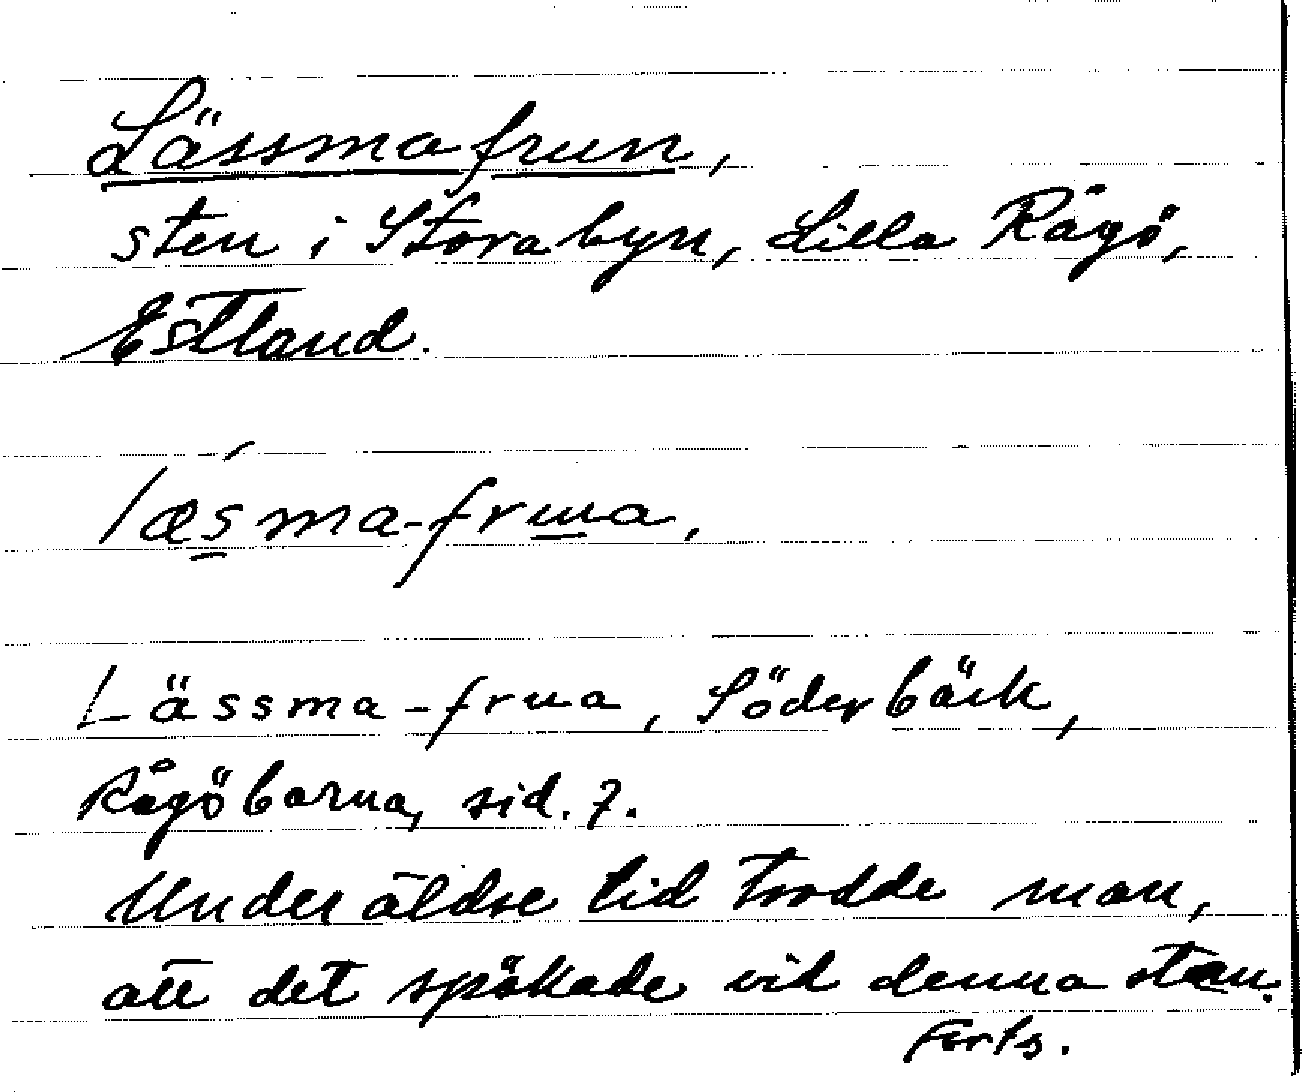 Lässmafrun,
sten i Storabyn, Lilla Rågö,
Estland.
lǽs̲ma-fru̲a,
Lässma-frua, Söderbäck,
Rågöbarna, sid. 7.
Under äldre tid trodde man,
att det spökade vid denna sten.
Forts.